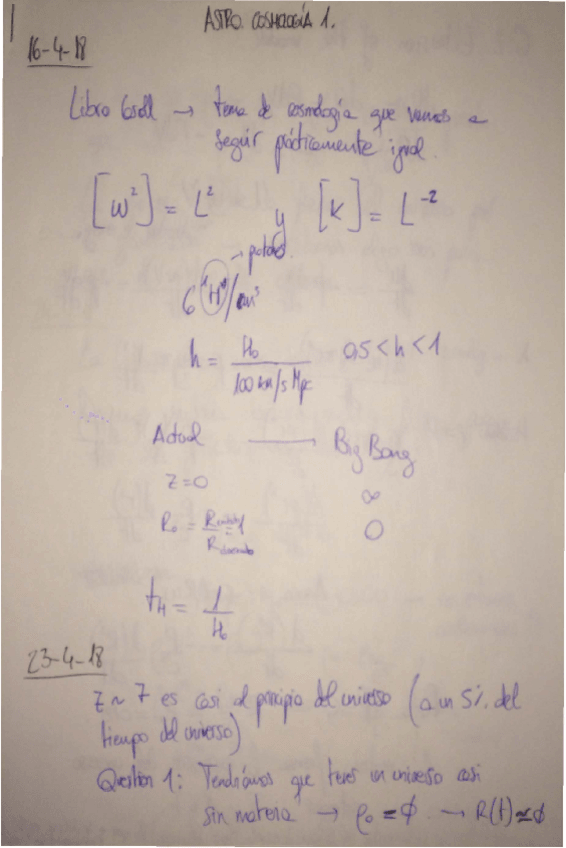 ASTRO. COSMOLOGÍA 1.
16-4-18
Libro → tema de cosmología que vamos a
seguir prácticamente igual.
[W²] = L² y [K] = L⁻²
→ potos.
6 ¹H⁺/cm³
h = H₀ / 100 km/s Mpc 0,5 < h < 1
Actual → Big Bang
z=0 ∞
R₀ = R / R = 1 0
t_H = 1 / H₀
23-4-18
z ~ 7 es casi al principio del universo (a un 5% del
tiempo del universo)
Question 1: Tendríamos que tener un universo casi
sin materia → ρ₀ = ∅ → R(t) ≃ ∅